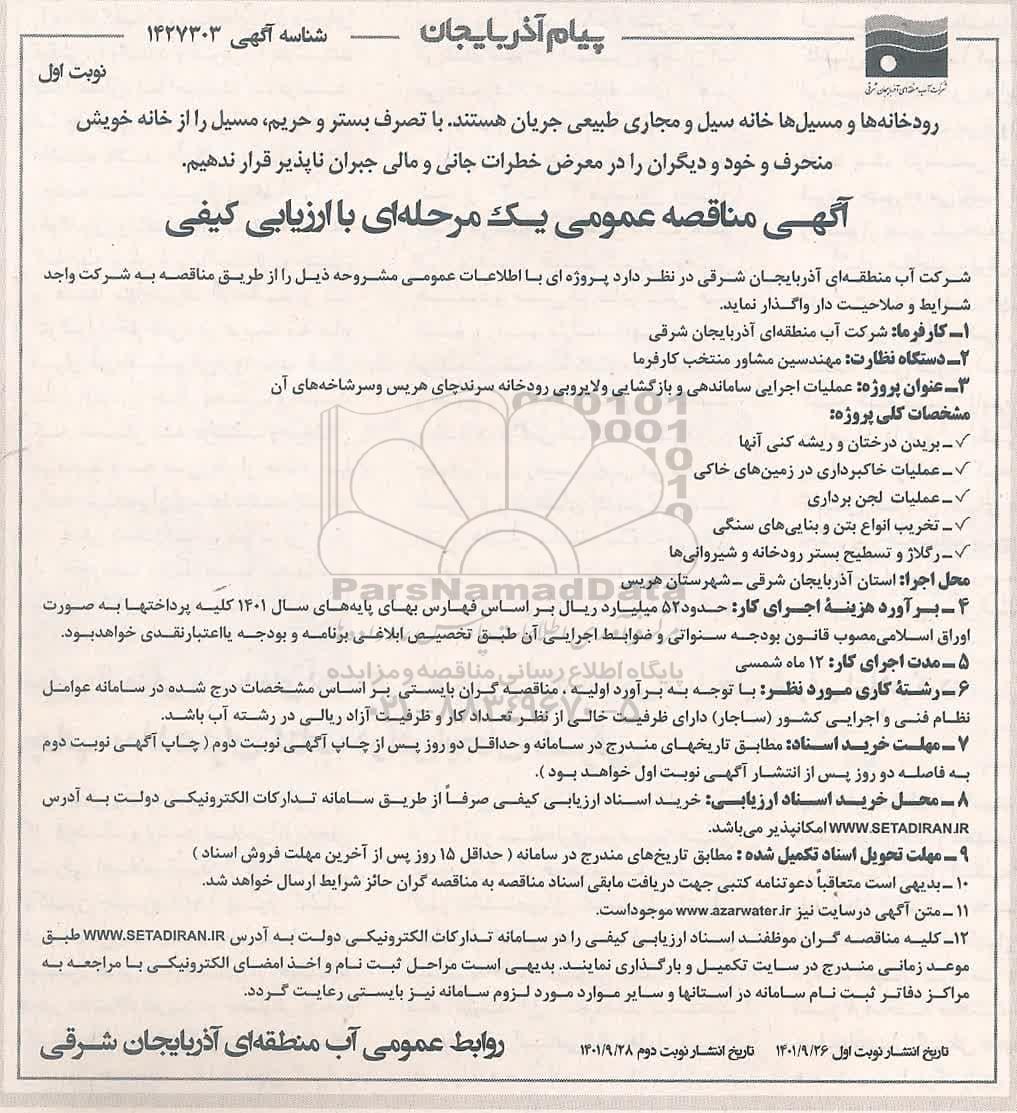 پیام آذربایجان
شناسه آگهی ۱۴۲۷۳۰۳
نوبت اول
شرکت آب منطقه‌ای آذربایجان شرقی
رودخانه‌ها و مسیل‌ها خانه سیل و مجاری طبیعی جریان هستند. با تصرف بستر و حریم، مسیل را از خانه خویش
منحرف و خود و دیگران را در معرض خطرات جانی و مالی جبران ناپذیر قرار ندهیم.
آگهی مناقصه عمومی یک مرحله‌ای با ارزیابی کیفی
شرکت آب منطقه‌ای آذربایجان شرقی در نظر دارد پروژه ای با اطلاعات عمومی مشروحه ذیل را از طریق مناقصه به شرکت واجد
شرایط و صلاحیت دار واگذار نماید.
۱ـ کارفرما: شرکت آب منطقه‌ای آذربایجان شرقی
۲ـ دستگاه نظارت: مهندسین مشاور منتخب کارفرما
۳ـ عنوان پروژه: عملیات اجرایی ساماندهی و بازگشایی ولایروبی رودخانه سرندچای هریس وسرشاخه‌های آن
مشخصات کلی پروژه:
✓ـ بریدن درختان و ریشه کنی آنها
✓ـ عملیات خاکبرداری در زمین‌های خاکی
✓ـ عملیات لجن برداری
✓ـ تخریب انواع بتن و بنایی‌های سنگی
✓ـ رگلاژ و تسطیح بستر رودخانه و شیروانی‌ها
محل اجرا: استان آذربایجان شرقی ـ شهرستان هریس
۴ ـ برآورد هزینهٔ اجرای کار: حدود۵۲ میلیارد ریال بر اساس فهارس بهای پایه‌های سال ۱۴۰۱ کلیه پرداختها به صورت
اوراق اسلامی‌مصوب قانون بودجه سنواتی و ضوابط اجرایی آن طبق تخصیص ابلاغی برنامه و بودجه یااعتبارنقدی خواهدبود.
۵ ـ مدت اجرای کار: ۱۲ ماه شمسی
۶ ـ رشتهٔ کاری مورد نظر: با توجه به برآورد اولیه ، مناقصه گران بایستی بر اساس مشخصات درج شده در سامانه عوامل
نظام فنی و اجرایی کشور (ساجار) دارای ظرفیت خالی از نظر تعداد کار و ظرفیت آزاد ریالی در رشته آب باشد.
۷ ـ مهلت خرید اسناد: مطابق تاریخهای مندرج در سامانه و حداقل دو روز پس از چاپ آگهی نوبت دوم ( چاپ آگهی نوبت دوم
به فاصله دو روز پس از انتشار آگهی نوبت اول خواهد بود ).
۸ ـ محل خرید اسناد ارزیابی: خرید اسناد ارزیابی کیفی صرفاً از طریق سامانه تدارکات الکترونیکی دولت به آدرس
WWW.SETADIRAN.IR امکانپذیر می‌باشد.
۹ ـ مهلت تحویل اسناد تکمیل شده : مطابق تاریخ‌های مندرج در سامانه ( حداقل ۱۵ روز پس از آخرین مهلت فروش اسناد )
۱۰ ـ بدیهی است متعاقباً دعوتنامه کتبی جهت دریافت مابقی اسناد مناقصه به مناقصه گران حائز شرایط ارسال خواهد شد.
۱۱ ـ متن آگهی درسایت نیز www.azarwater.ir موجوداست.
۱۲ـ کلیه مناقصه گران موظفند اسناد ارزیابی کیفی را در سامانه تدارکات الکترونیکی دولت به آدرس WWW.SETADIRAN.IR طبق
موعد زمانی مندرج در سایت تکمیل و بارگذاری نمایند. بدیهی است مراحل ثبت نام و اخذ امضای الکترونیکی با مراجعه به
مراکز دفاتر ثبت نام سامانه در استانها و سایر موارد مورد لزوم سامانه نیز بایستی رعایت گردد.
تاریخ انتشار نوبت اول ۱۴۰۱/۹/۲۶ تاریخ انتشار نوبت دوم ۱۴۰۱/۹/۲۸
روابط عمومی آب منطقه‌ای آذربایجان شرقی
ParsNamadData
پایگاه اطلاع رسانی مناقصه و مزایده